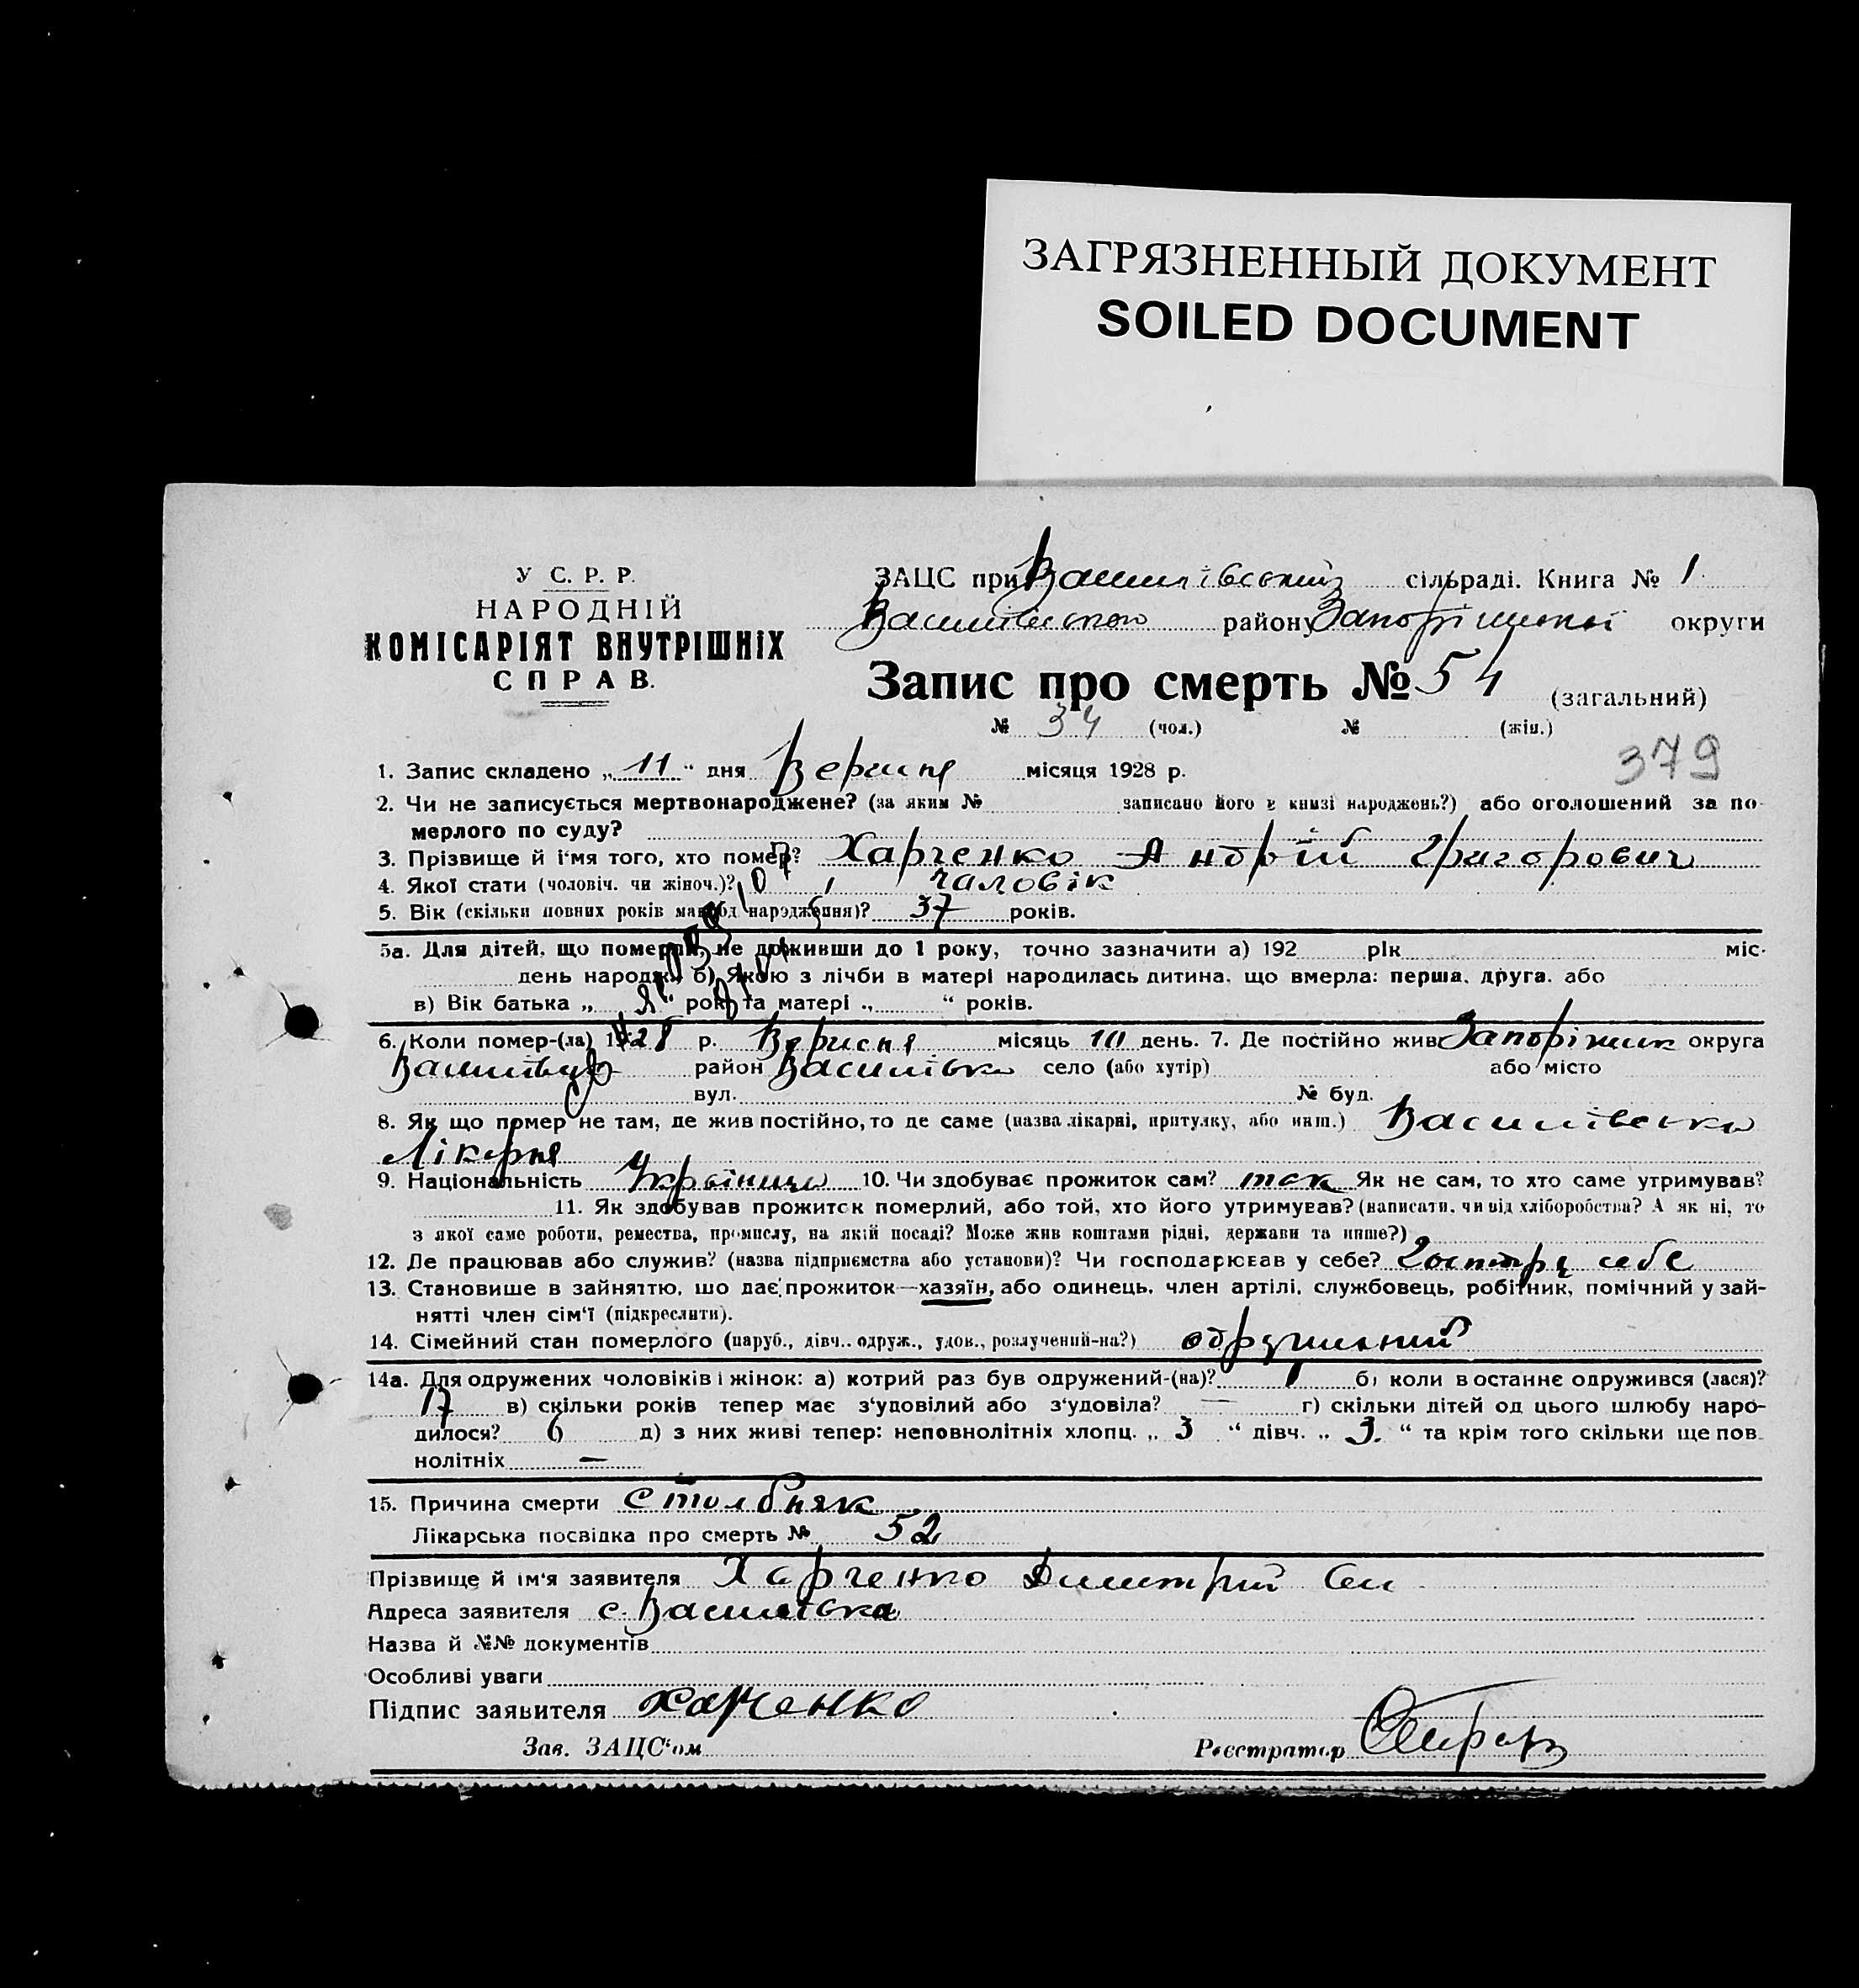 ЗАГРЯЗНЕННЫЙ ДОКУМЕНТ
SOILED DOCUMENT
У С. Р. Р.
НАРОДНІЙ
КОМІСАРІЯТ ВНУТРІШНІХ
СПРАВ.
ЗАЦС при Василівський сільраді. Книга № 1
Василівського району Запоріжської округи
Запис про смерть № 54 (загальний)
№ 34 (чол.) № (жін.)
379
1. Запис складено „ 11 “ дня Версня місяця 1928 р.
2. Чи не записується мертвонароджене? (за яким № записано його в книзі народжень?) або оголошений за по-
мерлого по суду?
3. Прізвище й ім'я того, хто помер? Харченко Андрій Григорович
4. Якої стати (чоловіч. чи жіноч.)? чаловік
5. Вік (скільки повних років мав од народження)? 37 років.
5а. Для дітей, що померли, не доживши до 1 року, точно зазначити а) 192 рік міс.
день народж. б) Якою з лічби в матері народилась дитина, що вмерла: перша, друга. або
в) Вік батька „ “ років та матері „ “ років.
6. Коли помер-(ла) 1928 р. Версня місяць 10 день. 7. Де постійно жив Запоріжик округа
район Василівка село (або хутір) або місто
вул. № буд.
8. Як що помер не там, де жив постійно, то де саме (назва лікарні, притулку, або инш.) Василівська
Лікерня
9. Національність Українець 10. Чи здобуває прожиток сам? так Як не сам, то хто саме утримував?
11. Як здобував прожиток померлий, або той, хто його утримував? (написати, чи від хліборобства? А як ні, то
з якої саме роботи, ремества, промислу, на якій посаді? Може жив коштами рідні, держави та инше?)
12. Де працював або служив? (назва підприємства або установи)? Чи господарював у себе? себе
13. Становише в зайняттю, шо дає прожиток—хазяїн, або одинець, член артілі, службовець, робітник, помічний у зай-
нятті член сім'ї (підкреслити).
14. Сімейний стан померлого (паруб., дівч.. одруж., удов., розлучений-на?) одружений
14а. Для одружених чоловіків і жінок: а) котрий раз був одружений-(на)? 1 б) коли в останнє одружився (лася)?
17 в) скільки років тепер має з'удовілий або з'удовіла? — г) скільки дітей од цього шлюбу наро-
дилося? 6 д) з них живі тепер: неповнолітніх хлопц. „ 3 “ дівч. „ 3. “ та крім того скільки ще пов-
нолітніх —
15. Причина смерти Столбняк
Лікарська посвідка про смерть № 52
Прізвище й ім'я заявителя Харченко Димитрий Сем
Адреса заявителя с. Василівка
Назва й №№ документів
Особливі уваги
Підпис заявителя Харченко
Зав. ЗАЦС'ом Реєстратор